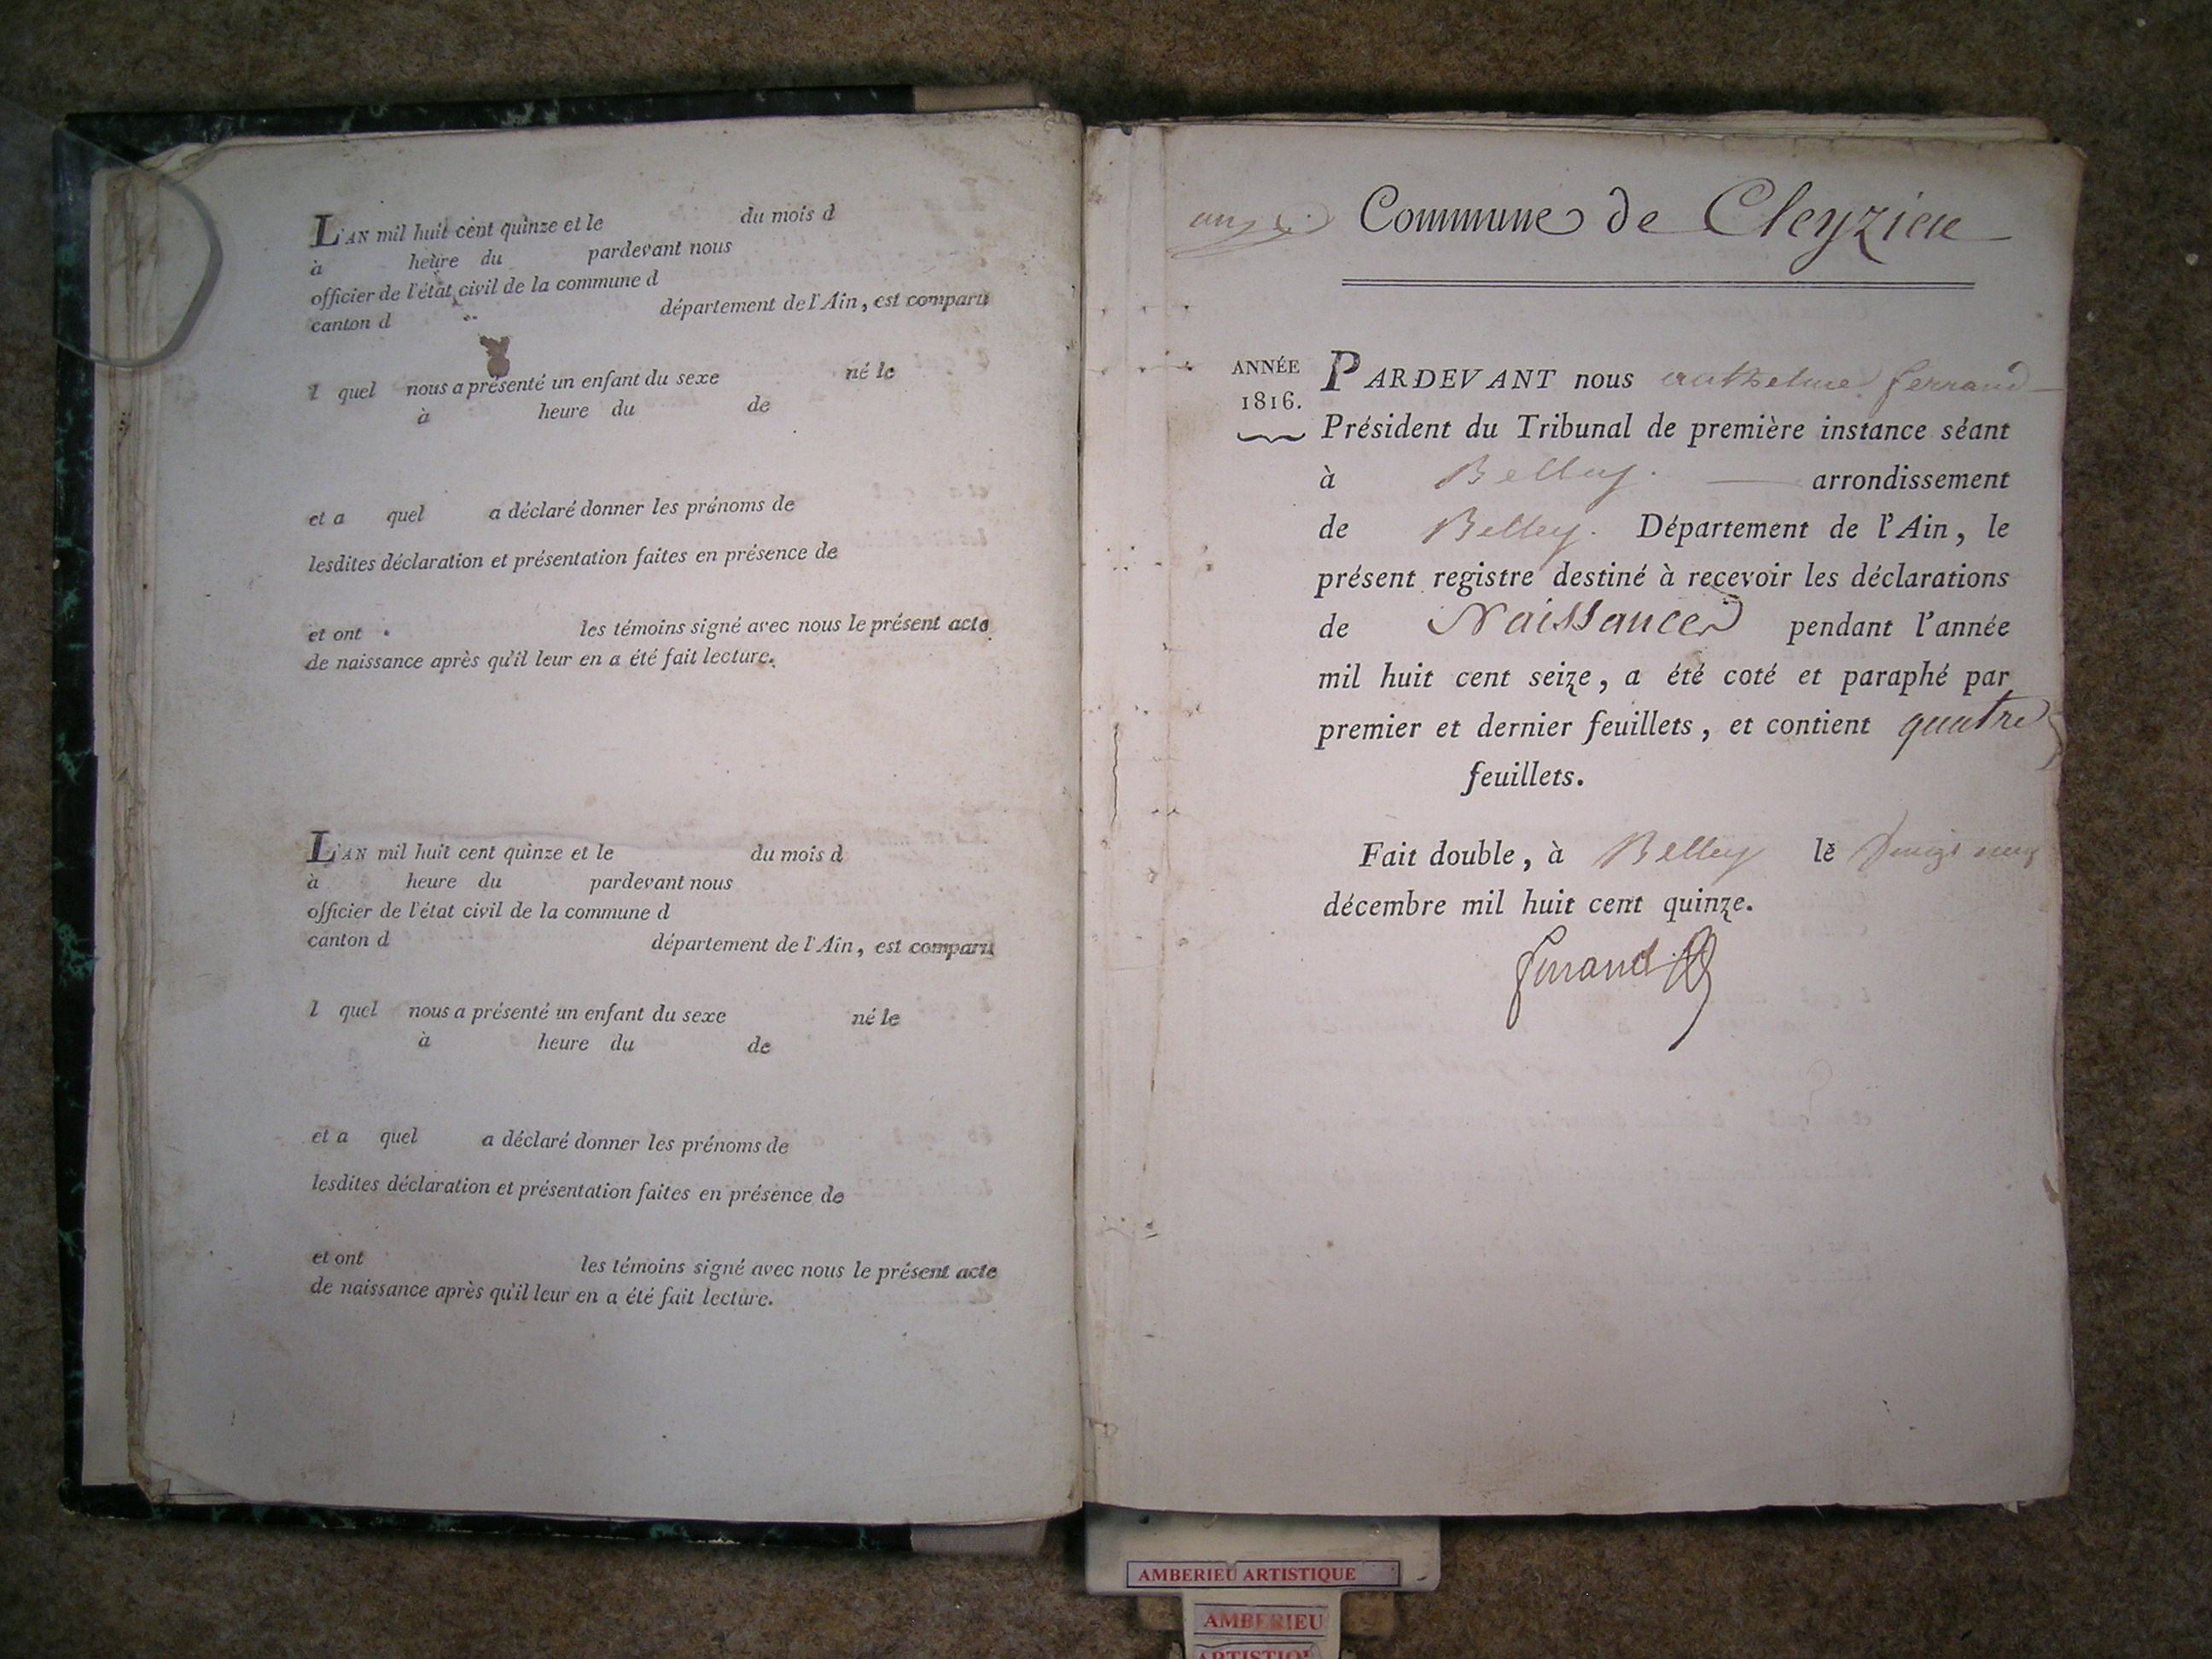 L'AN mil huit cent quinze et le du mois d
à heure du pardevant nous
officier de l'état civil de la commune d
canton d département de l'Ain, est comparu
l quel nous a présenté un enfant du sexe né le
à heure du de
et a quel a déclaré donner les prénoms de
lesdites déclaration et présentation faites en présence de
et ont les témoins signé avec nous le présent acte
de naissance après qu'il leur en a été fait lecture.
L'AN mil huit cent quinze et le du mois d
à heure du pardevant nous
officier de l'état civil de la commune d
canton d département de l'Ain, est comparu
l quel nous a présenté un enfant du sexe né le
à heure du de
et a quel a déclaré donner les prénoms de
lesdites déclaration et présentation faites en présence de
et ont les témoins signé avec nous le présent acte
de naissance après qu'il leur en a été fait lecture.
Commune de Cleyzieu
ANNÉE
1816.
PARDEVANT nous anthelme ferrand
Président du Tribunal de première instance séant
à Belley. arrondissement
de Belley. Département de l'Ain, le
présent registre destiné à recevoir les déclarations
de Naissances pendant l'année
mil huit cent seize, a été coté et paraphé par
premier et dernier feuillets, et contient quatre
feuillets.
Fait double, à Belley le vingt neuf
décembre mil huit cent quinze.
ferrand
AMBERIEU ARTISTIQUE
AMBERIEU
ARTISTIQUE